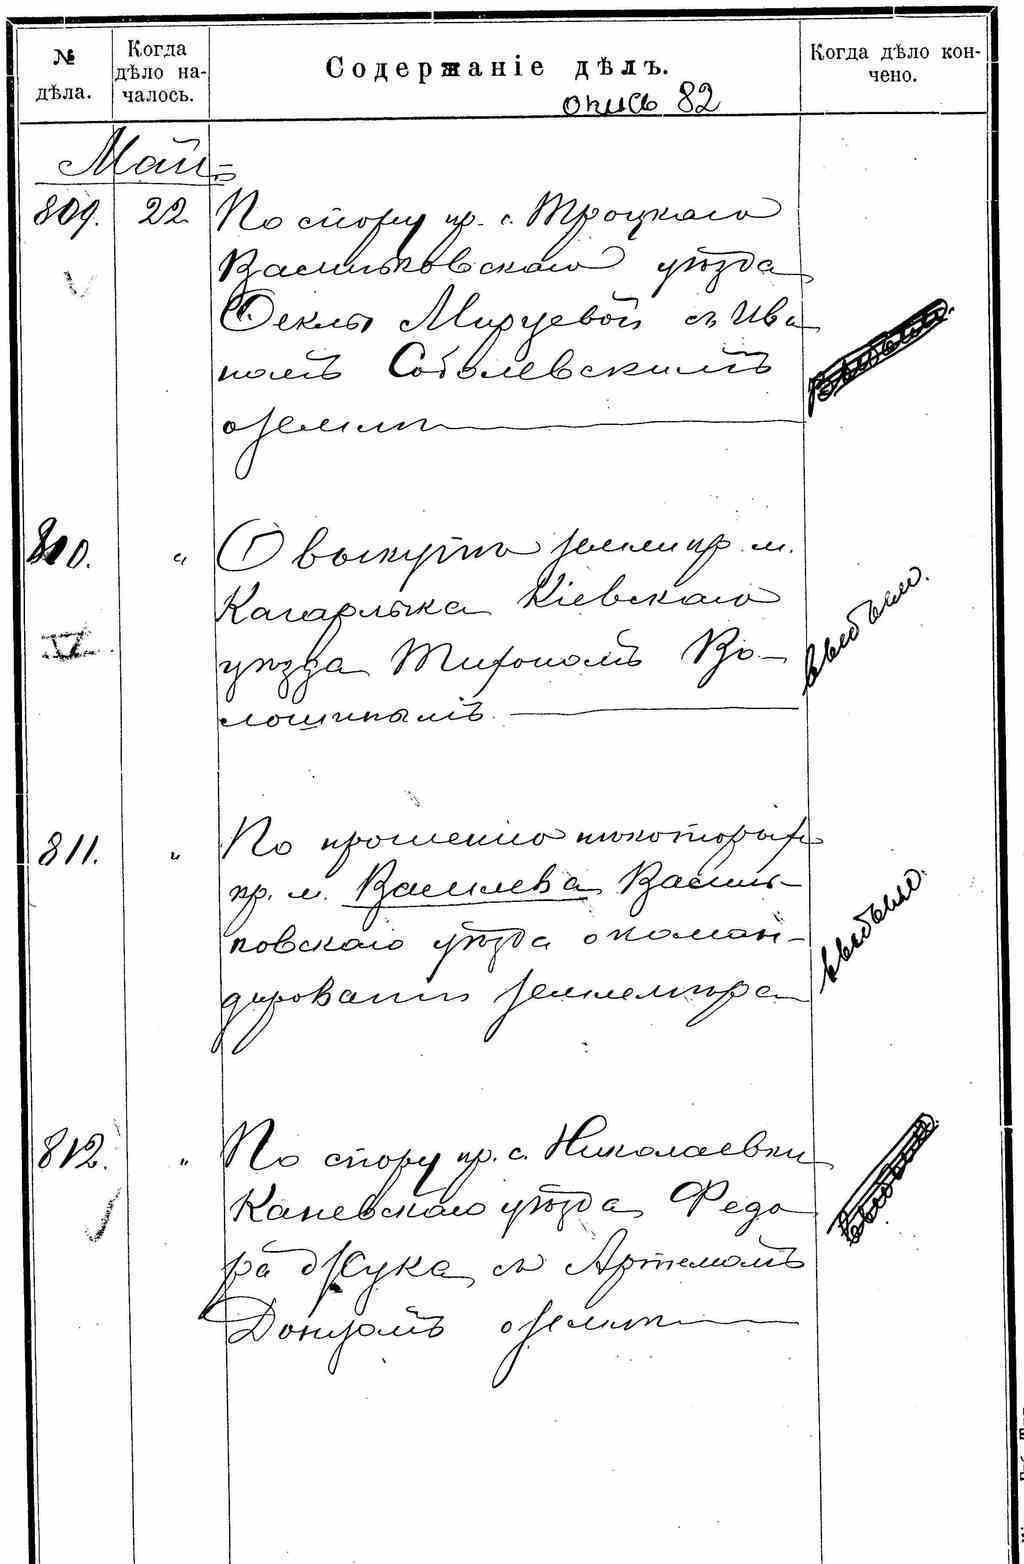 № дѣла.
Когда дѣло началось.
Содержаніе дѣлъ.
Когда дѣло кончено.
опись 82
Май
809. 22 По спору кр. с. Троцкаго
Васильковскаго уѣзда
Феклы Мируевой съ Ива
номъ Соболевскимъ
о землѣ
выбыло.
810. " О выкупѣ земли кр. м.
Кагарлыка Кіевскаго
уѣзда Тифономъ Во-
лошинымъ
выбыло.
811. " По прошенію нѣкоторыхъ
кр. м. Василева Василь-
ковскаго уѣзда о коман-
дированіи землемѣра
выбыло.
812. " По спору кр. с. Николаевки
Каневскаго уѣзда Федо
ра Жука съ Артемомъ
о землѣ
выбыло